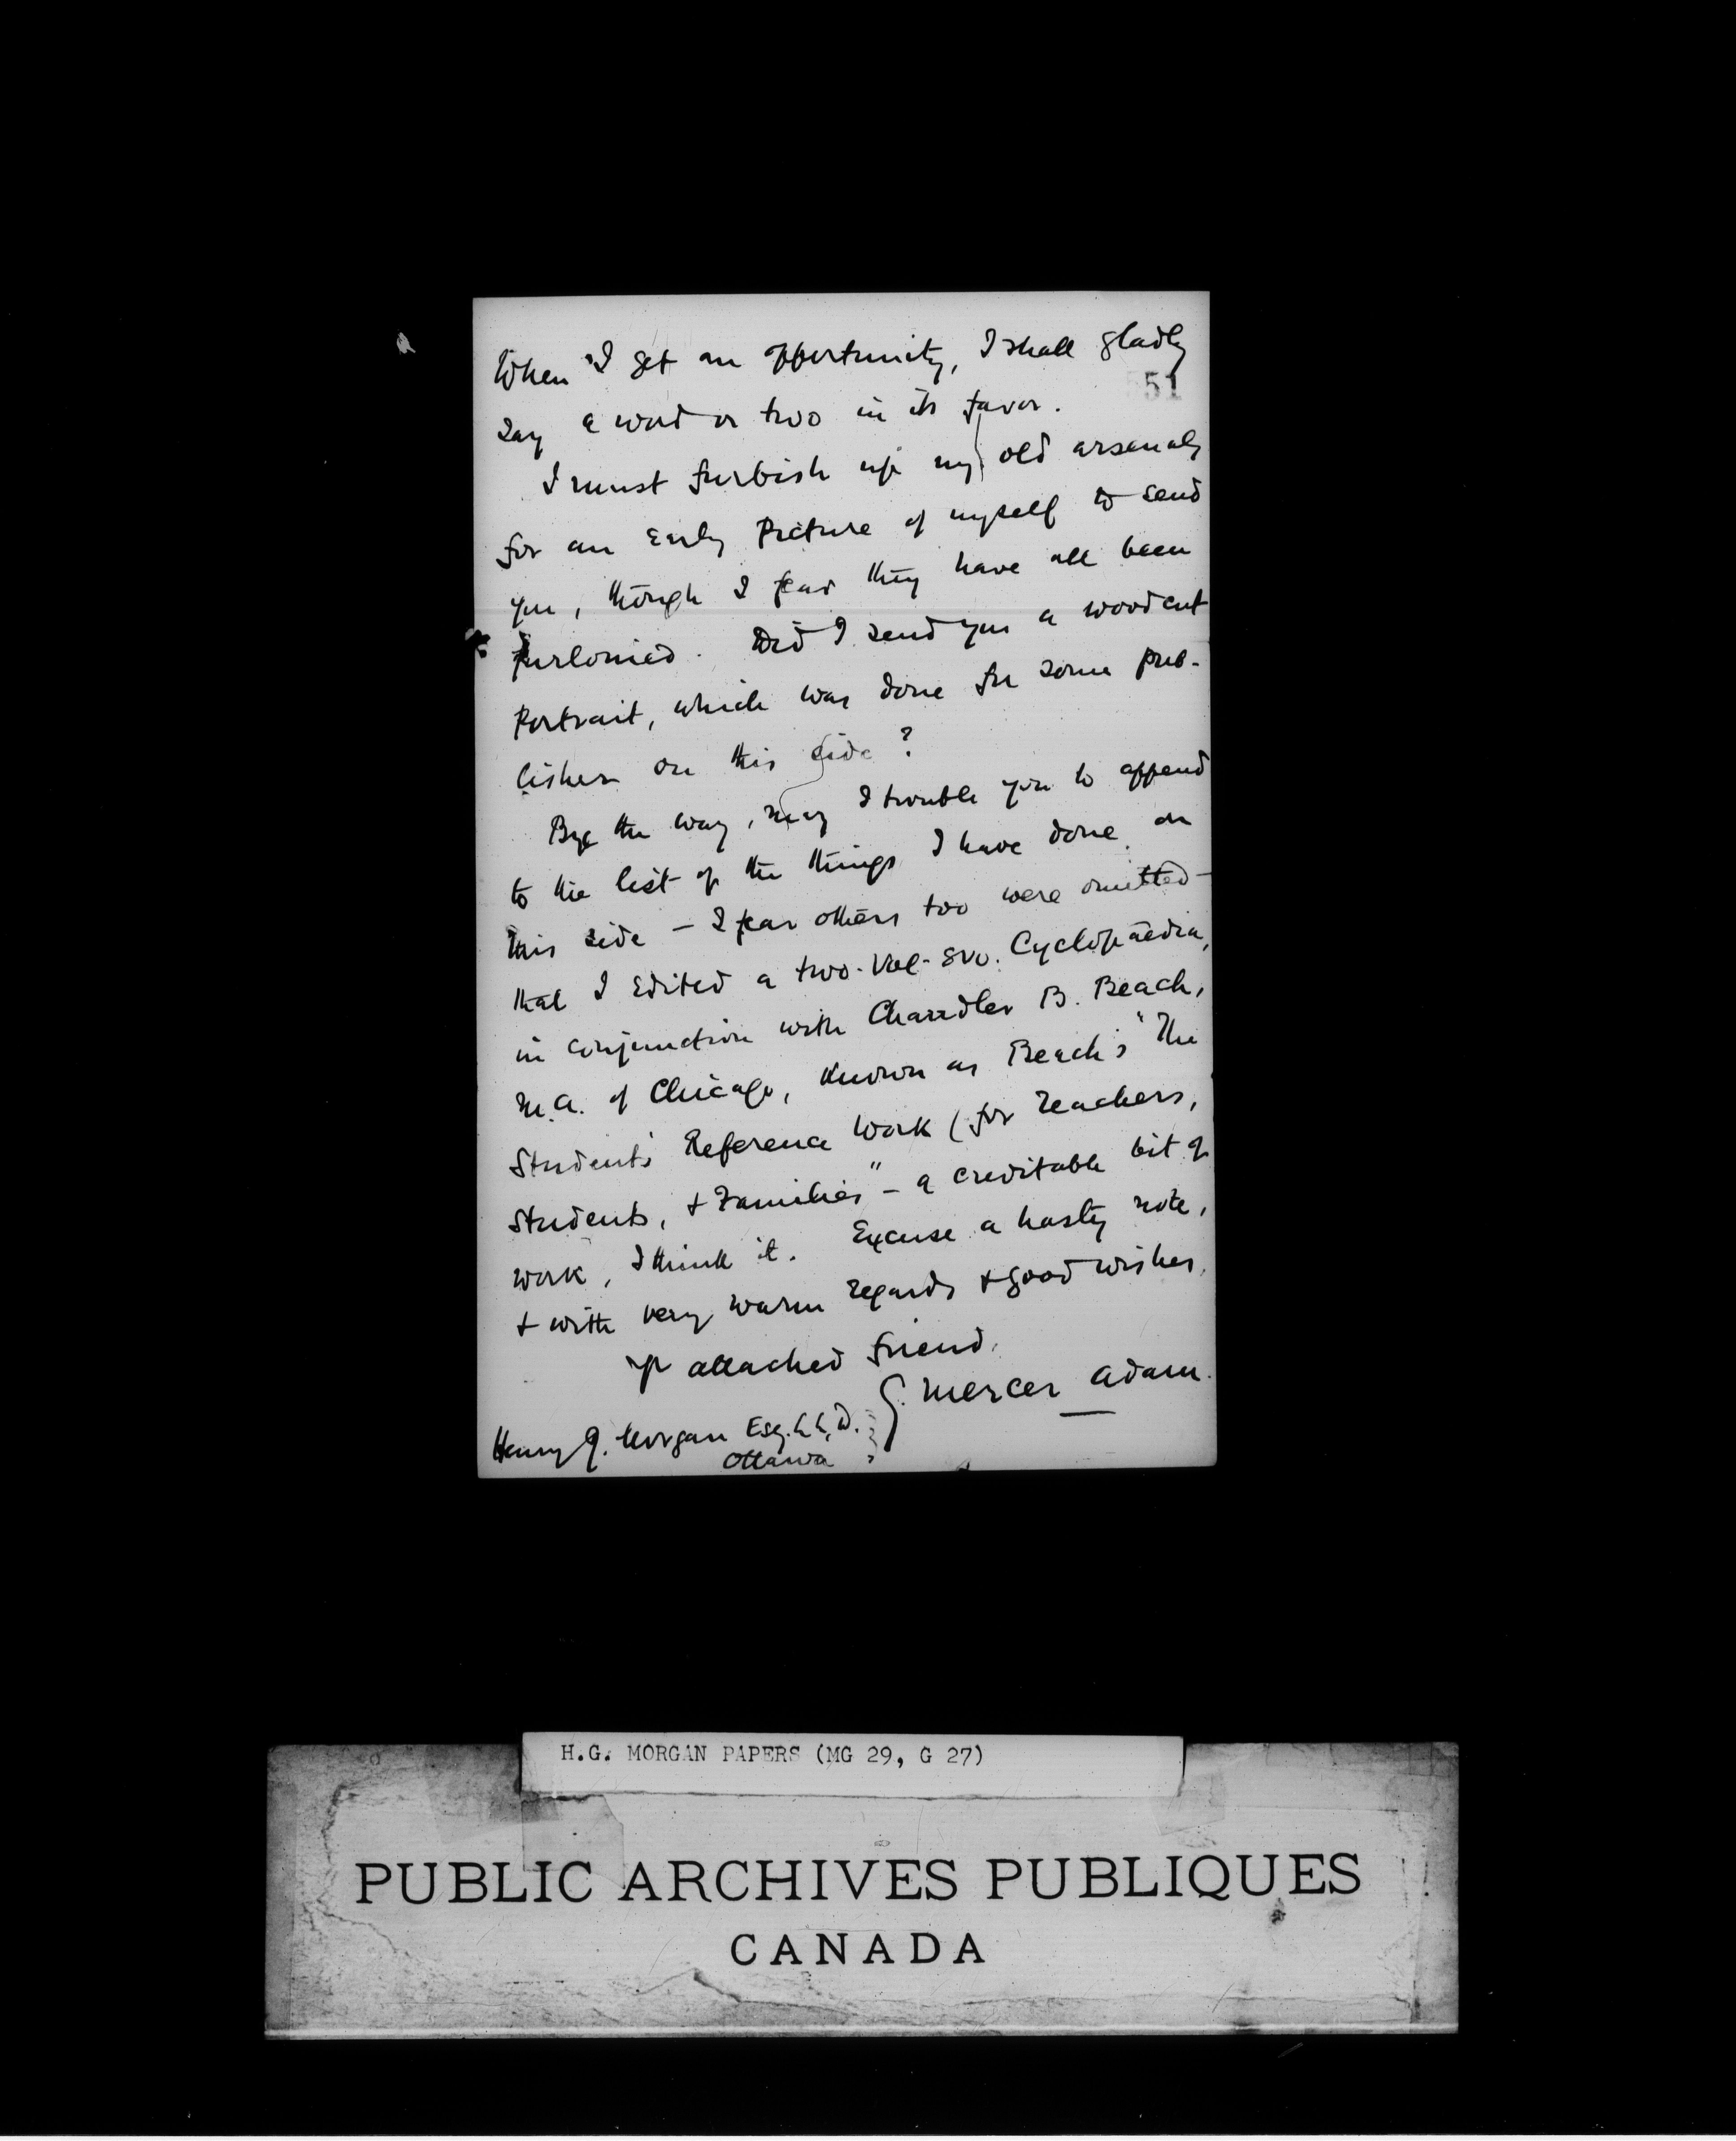 When I get an opportunity, I shall gladly
551
say a word or two in its favor.
I must furbish up my old arsenals
for an early picture of myself to send
you, though I fear they have all been
purloined. Did I send you a woodcut
portrait, which was done for some pub-
lisher on this side?
Bye the way, may I trouble you to append
to the list of the things I have done on
this side – I fear others too were omitted –
that I edited a two-vol-8vo. Cyclopaedia,
in conjunction with Chandler B. Beach,
M.A. of Chicago, known as Beach's "The
Student's Reference Work (for Teachers,
Students, & Families" – a creditable bit of
work, I think it. Excuse a hasty note,
& with very warm regards & good wishes,
yr attached friend,
G. Mercer Adam.
Henry J. Morgan Esq. LL.D.
Ottawa
H.G. MORGAN PAPERS (MG 29, G 27)
PUBLIC ARCHIVES PUBLIQUES
CANADA